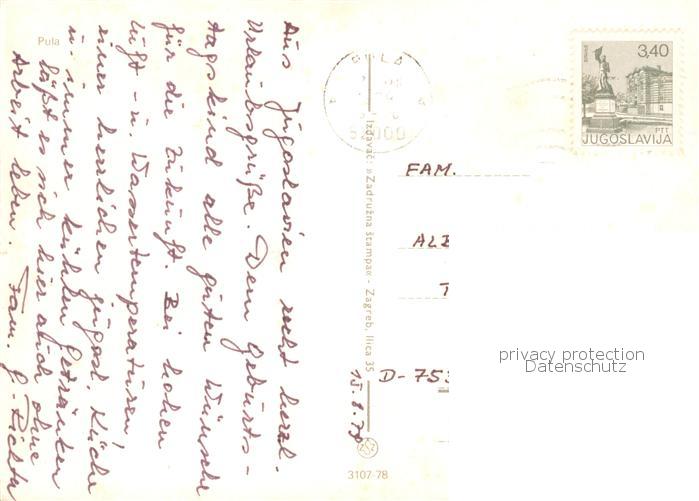 Pula
Aus Jugoslavien recht herzl.
Urlaubsgrüße. Dem Geburts-
tagskind alle guten Wünsche
für die Zukunft. Bei hohen
Luft- u. Wassertemperaturen,
einer herrlichen jugosl. Küche
u. immer kühlen Getränken
läßt es sich hier auch ohne
Arbeit leben. Fam. G. Richter
Izdavač: »Zadružna štampa« - Zagreb, Ilica 35
3107-78
PULA
52000
3,40
PTT
JUGOSLAVIJA
FAM.
ALB
D-753
privacy protection
Datenschutz